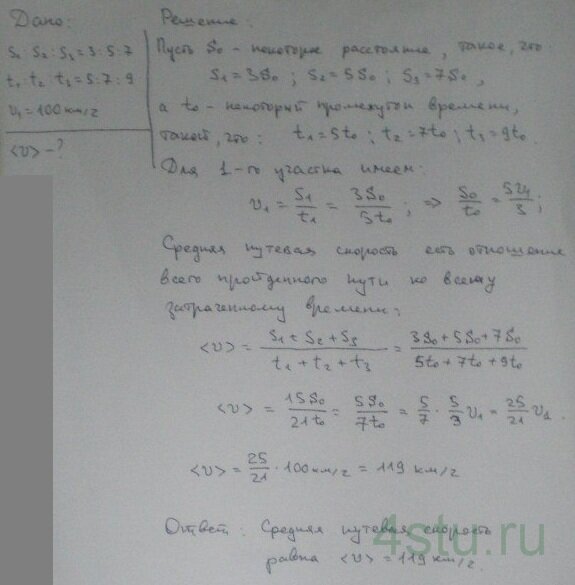 Дано:
S₁ : S₂ : S₃ = 3 : 5 : 7
t₁ : t₂ : t₃ = 5 : 7 : 9
v₁ = 100 км/г
<v> - ?
Решение:
Пусть S₀ - некоторое расстояние, такое, что:
S₁ = 3S₀ ; S₂ = 5S₀ ; S₃ = 7S₀ ,
а t₀ - некоторый промежуток времени,
такой, что: t₁ = 5t₀ ; t₂ = 7t₀ ; t₃ = 9t₀ .
Для 1-го участка имеем:
v₁ = S₁/t₁ = 3S₀/5t₀ ; => S₀/t₀ = 5v₁/3 ;
Средняя путевая скорость есть отношение
всего пройденного пути ко всему
затраченному времени:
<v> = (S₁ + S₂ + S₃)/(t₁ + t₂ + t₃) = (3S₀ + 5S₀ + 7S₀)/(5t₀ + 7t₀ + 9t₀)
<v> = 15S₀/21t₀ = 5S₀/7t₀ = 5/7 · 5/3 v₁ = 25/21 v₁ .
<v> = 25/21 · 100 км/г = 119 км/г
Ответ: Средняя путевая скорость
равна <v> = 119 км/г.
4stu.ru